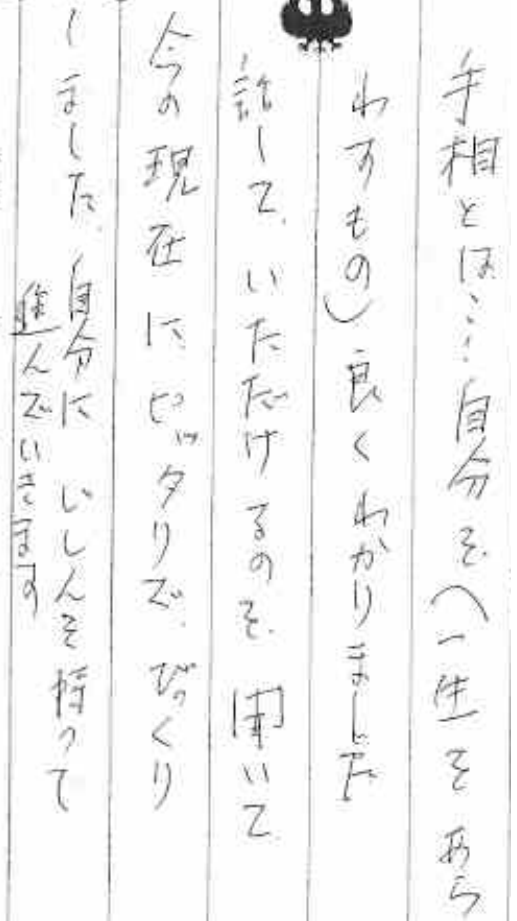 手相とは…自分を(一生をあら
わすもの)良くわかりました
話して、いただけるのを、聞いて
今の現在に、ピッタリで、びっくり
しました、自分に じしんを持って
進んでいきます